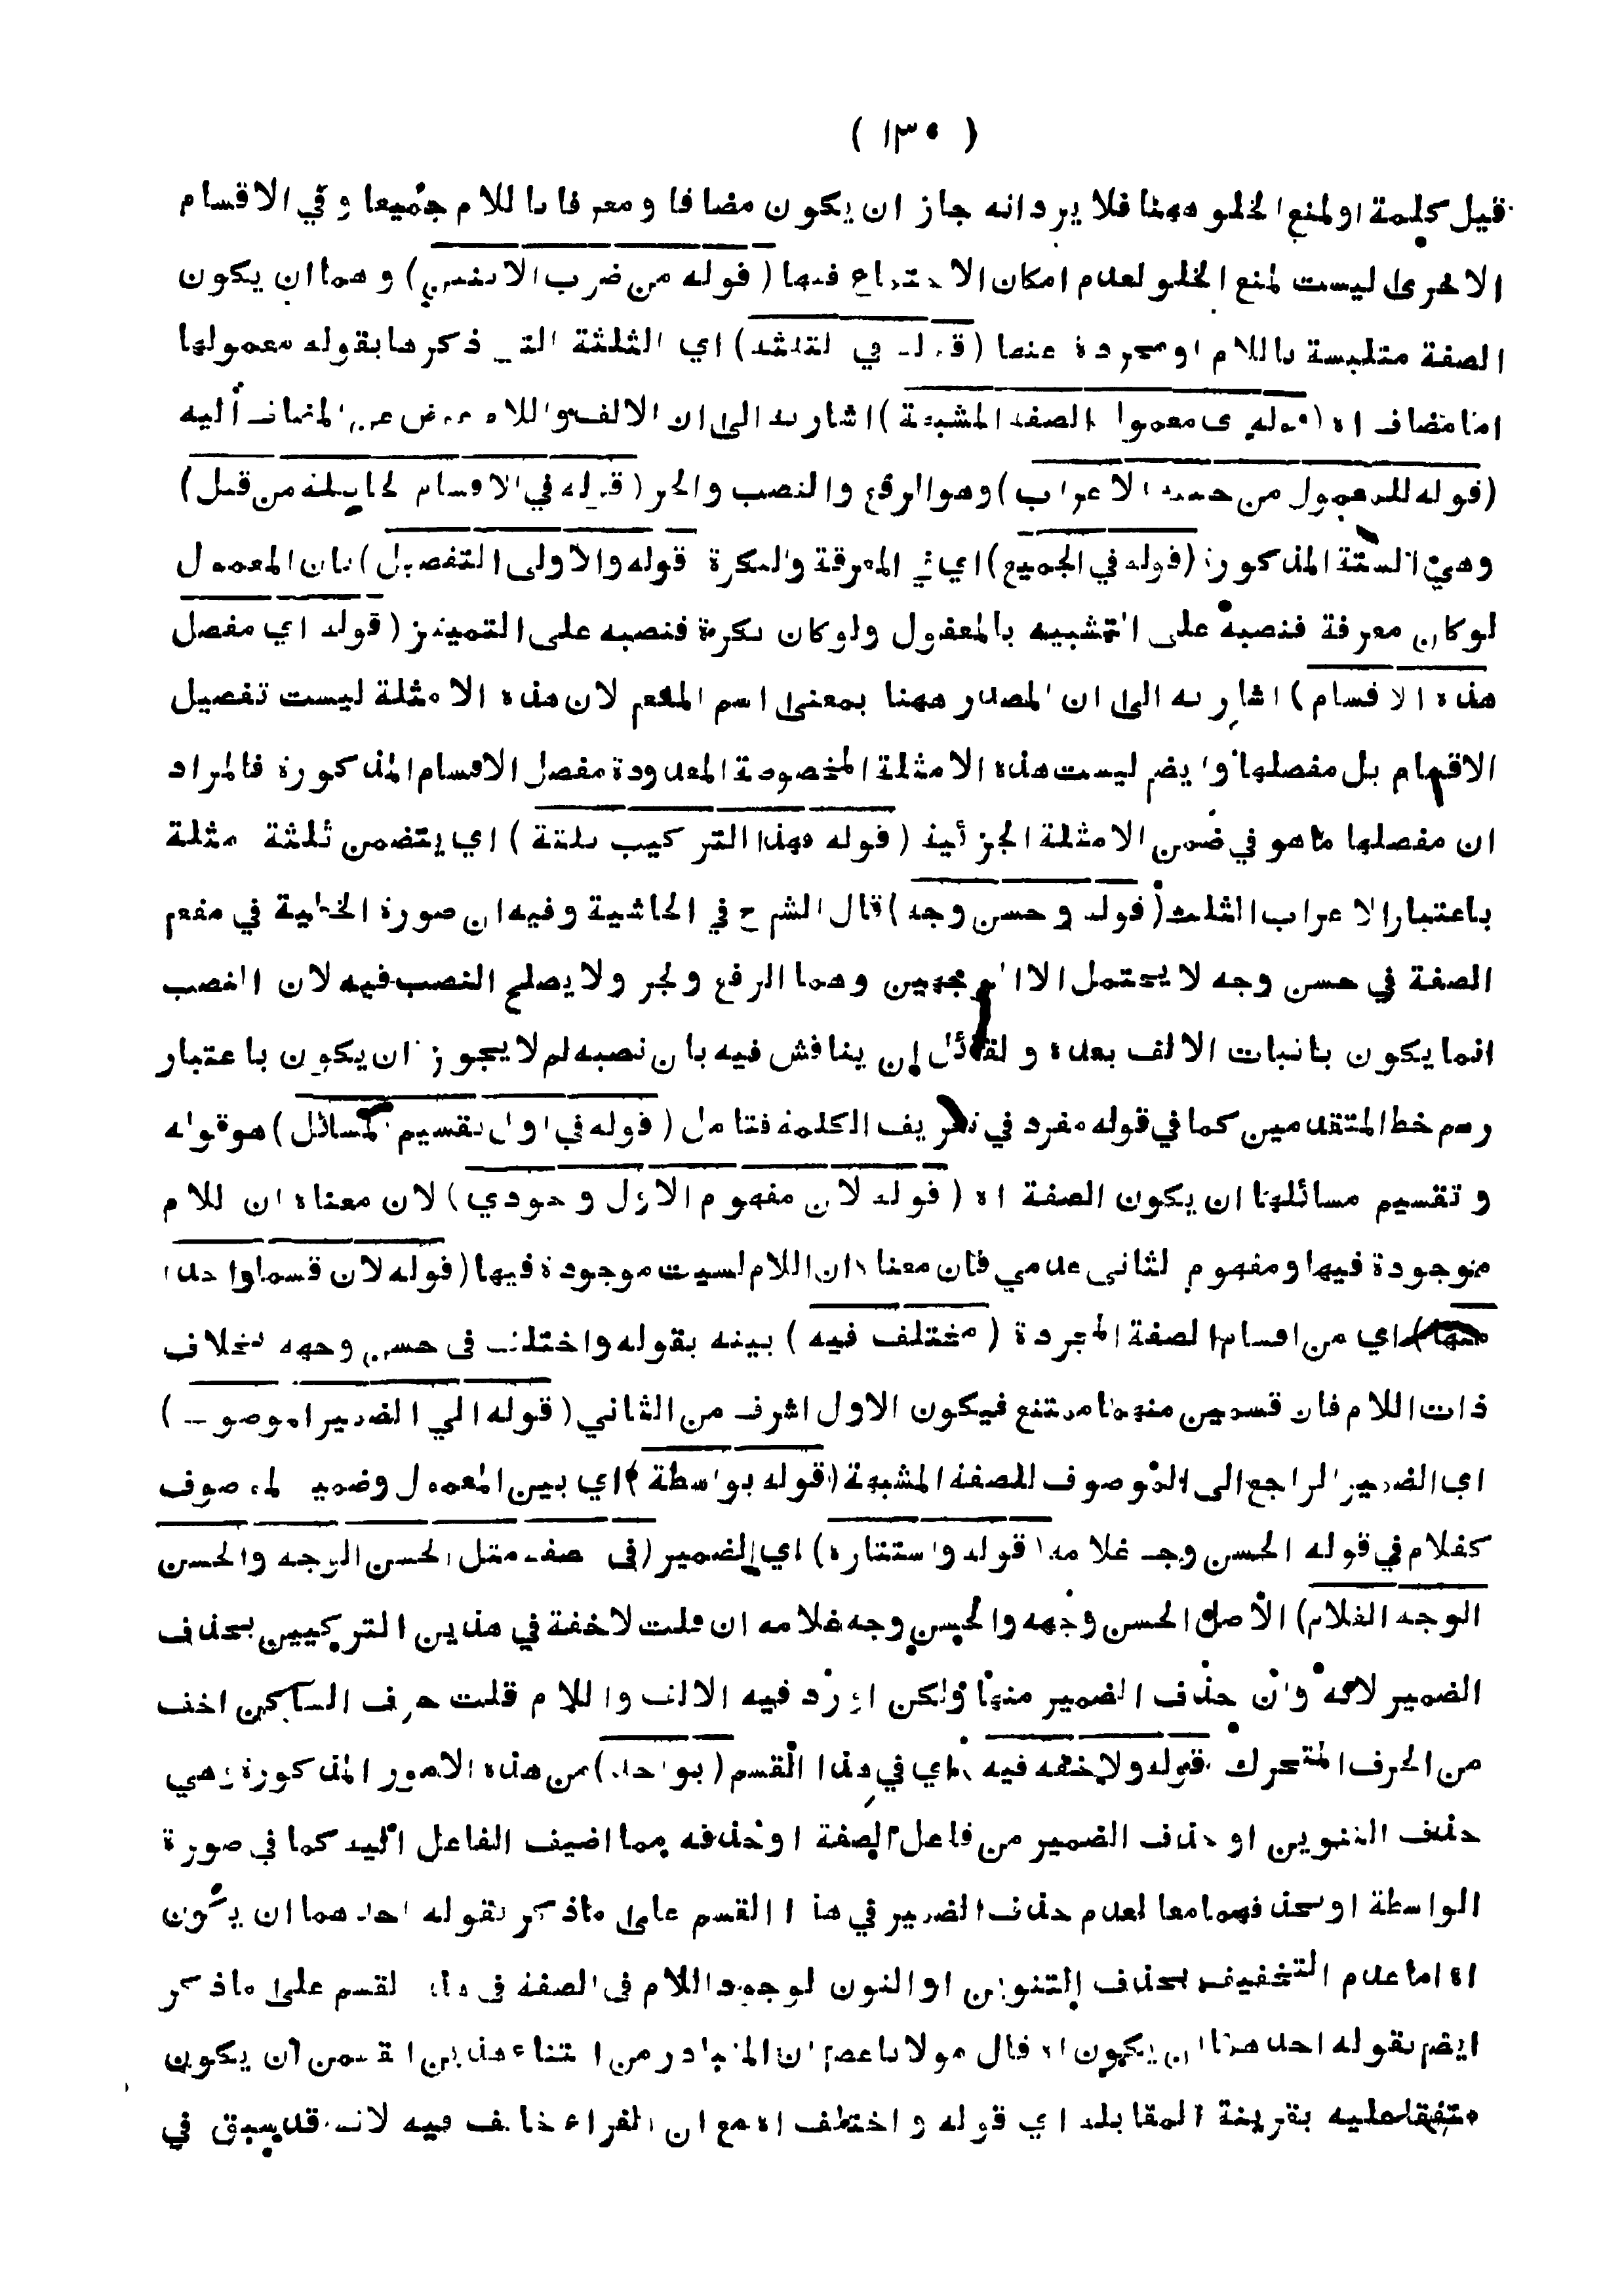 ( ١٣٠ )
قيل كلمة او لمنع الخلو ههنا فلا يرد انه جاز ان يكون مضافا ومعرفا باللام جميعا و في الاقسام
الاخرى ليست لمنع الخلو لعدم امكان الاجتماع فيها ( قوله من ضرب الاثنين ) و هما ان يكون
الصفة متلبسة باللام او مجردة عنها ( قوله في الثلثة ) اي الثلثة التي ذكرها بقوله معمولها
اما مضاف اه ( قوله معمول الصفة المشبهة ) اشار به الى ان الالف واللام عوض عن المضاف اليه
( قوله للمعمول من حيث الاعراب ) وهو الرفع والنصب والجر ( قوله في الاقسام الحاصلة من قبل )
وهي الستة المذكورة ( قوله في الجميع ) اي في المعرفة والنكرة قوله والاولى التفصيل ) بان المعمول
لو كان معرفة فنصبه على التشبيه بالمفعول ولو كان نكرة فنصبه على التمييز ( قوله اي مفصل
هذه الاقسام ) اشار به الى ان المصدر ههنا بمعنى اسم المفعم لان هذه الامثلة ليست تفصيل
الاقسام بل مفصلها وايضم ليست هذه الامثلة المخصوصة المعدودة مفصل الاقسام المذكورة فالمراد
ان مفصلها ما هو في ضمن الامثلة الجزئية ( قوله فهذا التركيب ثلثة ) اي يتضمن ثلثة مثلة
باعتبار الاعراب الثلث ( قوله و حسن وجه ) قال الشرح في الحاشية وفيه ان صورة الخطية في مفعم
الصفة في حسن وجه لا يحتمل الا الوجهين وهما الرفع ولجر ولا يصلح النصب فيه لان النصب
انما يكون باثبات الالف بعده و لقائل ان يناقش فيه بان نصبه لم لا يجوز ان يكون باعتبار
رسم خط المتقدمين كما في قوله مفرد في تعريف الكلمة فتامل ( قوله في اول تقسيم المسائل ) هو قوله
و تقسيم مسائلها ان يكون الصفة اه ( قوله لان مفهوم الاول وجودي ) لان معناه ان للام
موجودة فيها ومفهوم لثانى عدمي فان معناه ان اللام لسيت موجودة فيها ( قوله لان قسما واحدا
منها ) اي من اقسام الصفة المجردة ( مختلف فيه ) بينه بقوله واختلف فى حسن وجهه بخلاف
ذات اللام فان قسمين منهما ممتنع فيكون الاول اشرف من الثاني ( قوله الي الضمير الموصو )
اي الضمير الراجع الى الموصوف للصفة المشبهة ( قوله بواسطة ) اي بين المعمول وضمير الموصوف
كغلام في قوله الحسن وجه غلامه ( قوله واستتاره ) اي الضمير ( فى صفة مثل الحسن الوجه والحسن
الوجه الغلام ) الاصل الحسن وجهه والحسن وجه غلامه ان قلت لا خفة في هذين التركيبين بحذف
الضمير لانه وان حذف الضمير منها ولكن ازد فيه الالف واللام قلت حرف الساكن اخف
من الحرف المتحرك قوله ولا خفة فيه اي في هذا القسم ( بواحد ) من هذه الامور المذكورة وهي
حذف التنوين او حذف الضمير من فاعل الصفة او حذفه مما اضيف الفاعل اليه كما في صورة
الواسطة او حذفهما معا لعدم حذف الضمير في هذا القسم على ماذكر بقوله احدهما ان يكون
اه اما عدم التخفيف بحذف التنوين او النون لوجود اللام في الصفة فى لقسم على ماذكر
ايضم بقوله احدهما ان يكون اه قال مولانا عصم ان المتبادر من استثناء هذين القسمين ان يكون
متفقا عليه بقرينة المقابلة اي قوله و اختلف اه مع ان الفراء خالف فيه لانه قد سبق في